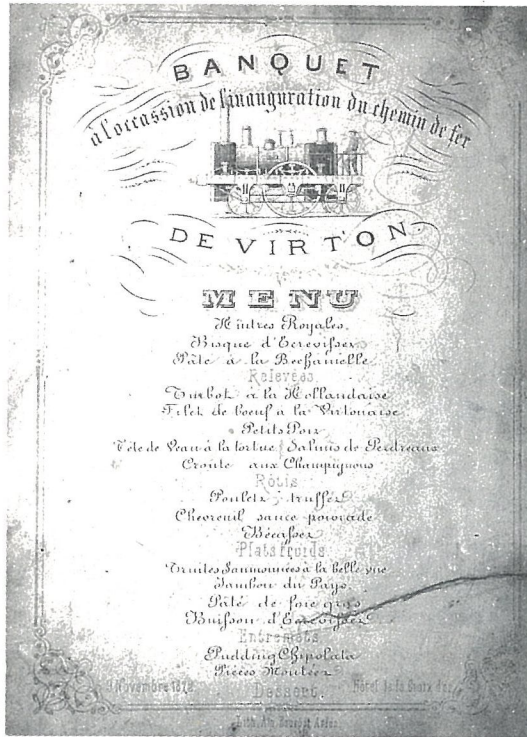 BANQUET
à l'occassion de l'inauguration du chemin de fer
DE VIRTON.
MENU
Huîtres Royales.
Bisque d'Ecrevisses
Pâté à la Bechamelle
Relevées
Turbot à la Hollandaise
Filet de boeuf à la Virtonaise
Petits Pois
Tête de Veau à la tortue Salmis de Perdreaux
Croute aux Champignons
Rôtis
Poulets truffés
Chevreuil sauce poivrade
Bécasses
Plats froids
Truites Saumonnées à la belle vue
Jambon du Pays
Pâté de foie gras
Buisson d'Ecrevisses
Entremets
Pudding Chipolata
Pièces Montées
Dessert.
Novembre Hôtel de la Croix d'or
Lith.